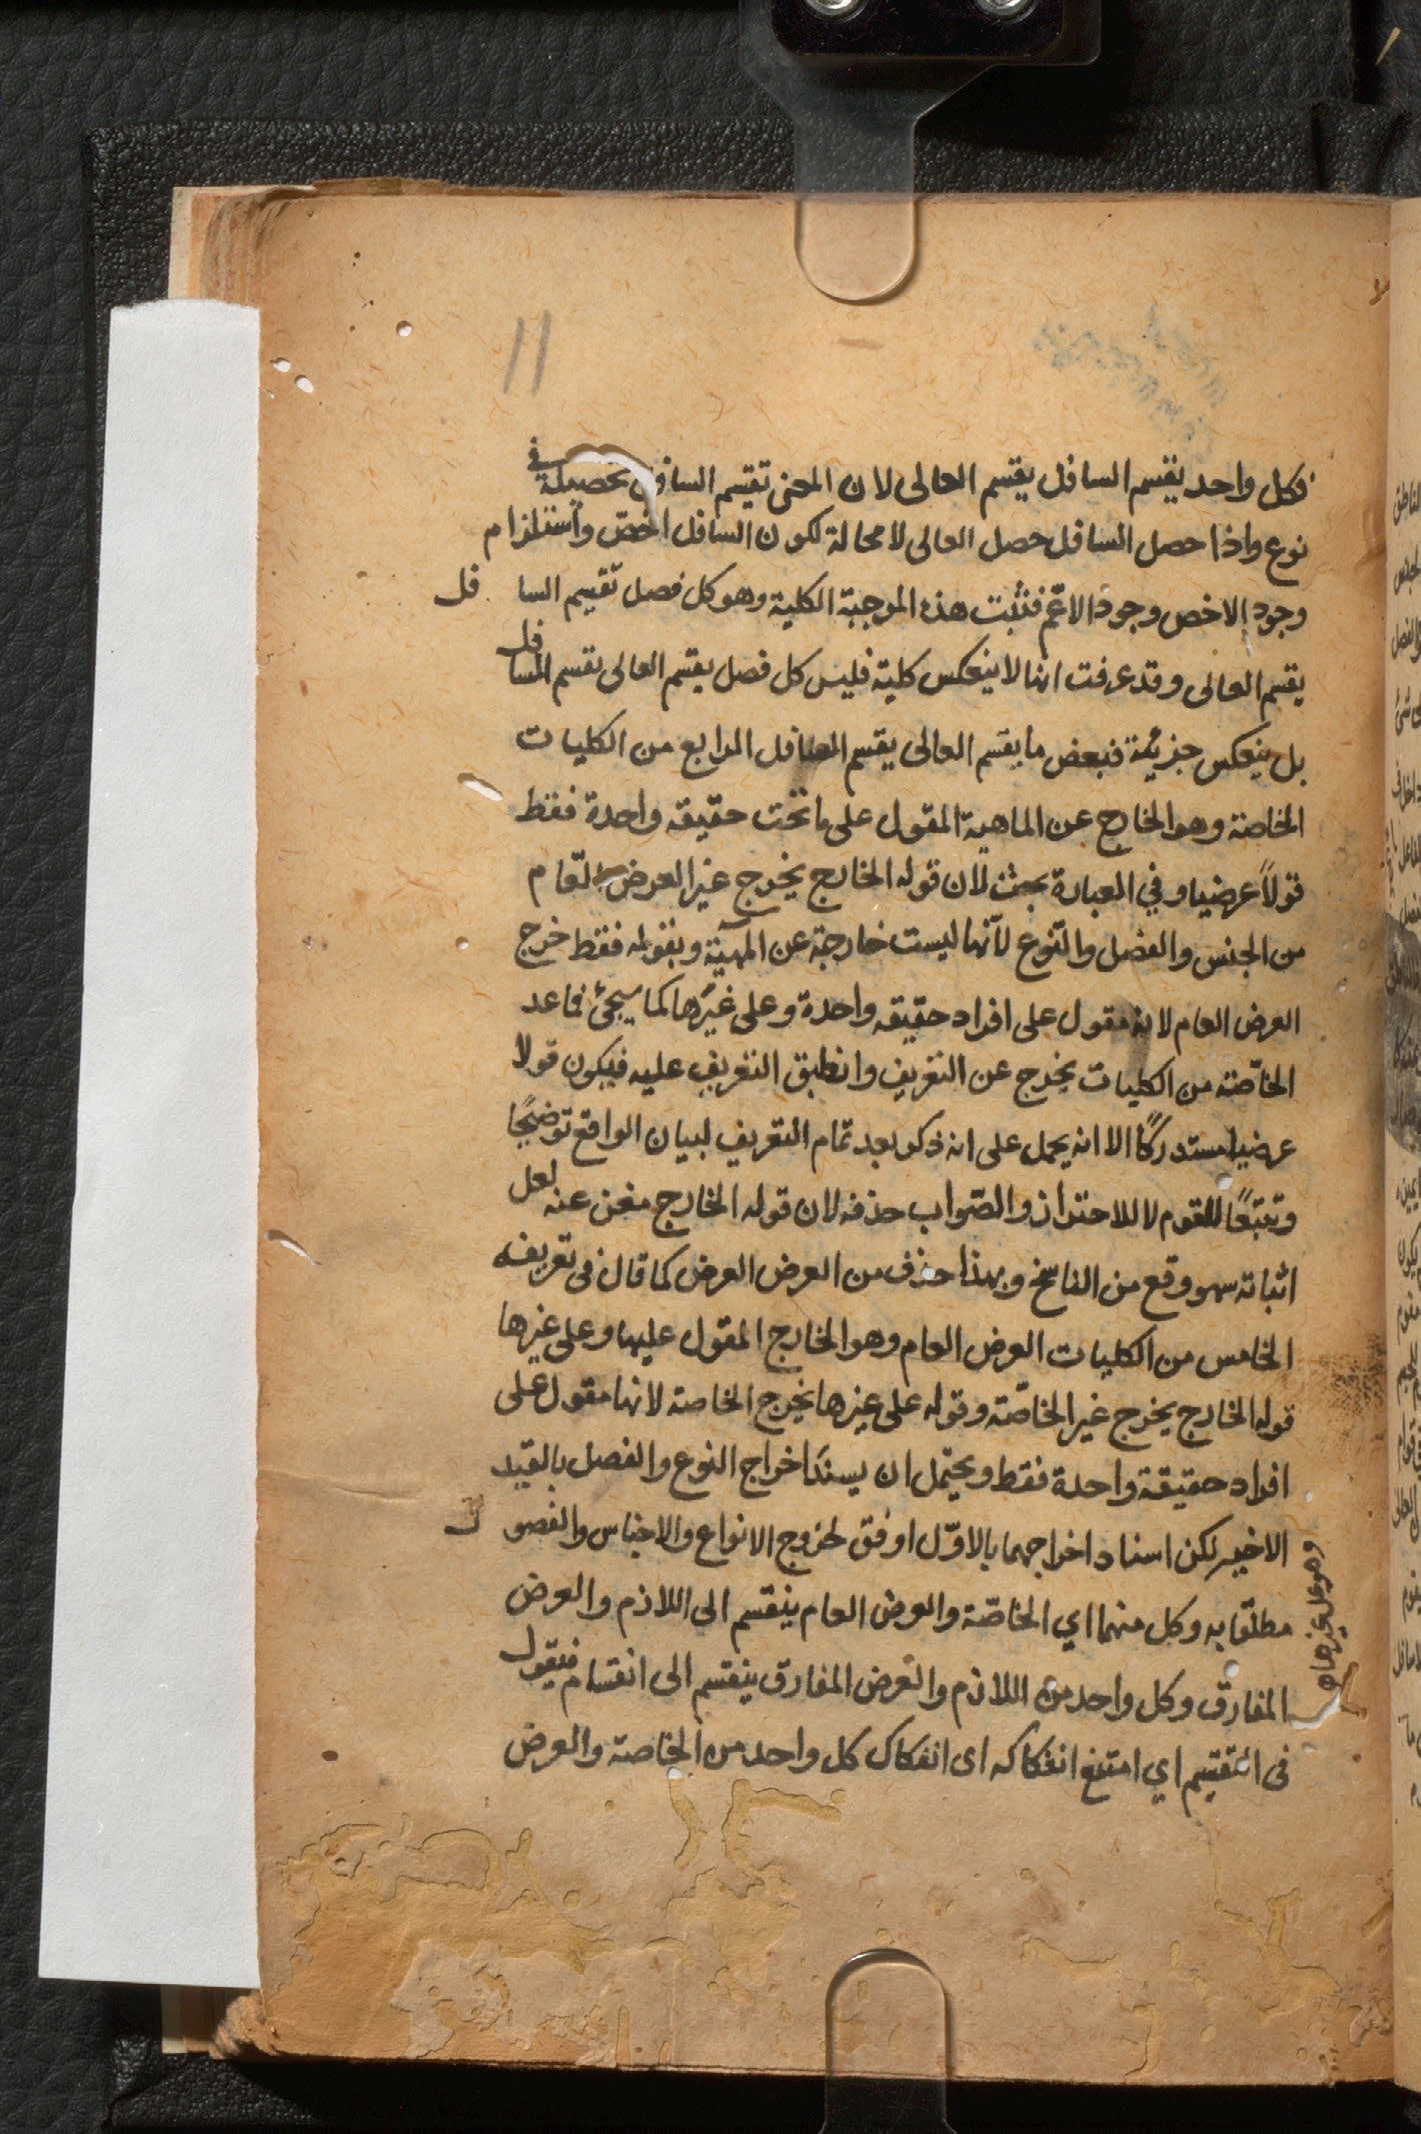 11
فكل واحد يقسم السافل يقسم العالى لان المعنى تقسيم السافل تحصيله في
نوع واذا حصل السافل حصل العالى لا محالة لكون السافل اخصّ واستلزام
وجود الاخص وجود الاعمّ فثبت هذه الموجبة الكلية وهو كل فصل تقسيم السافل
يقسم العالى وقد عرفت انها لا ينعكس كلية فليس كل فصل يقسم العالى يقسم السافل
بل ينعكس جزئية فبعض ما يقسم العالى يقسم السافل الرابع من الكليات
الخاصة وهو الخارج عن الماهية المقول على ما تحت حقيقة واحدة فقط
قولاً عرضيا وفي العبارة بحث لان قوله الخارج يخرج غير العرض العام
من الجنس والفصل والنّوع لأنها ليست خارجة عن المهيّة وبقوله فقط خرج
العرض العام لانه مقول على افراد حقيقة واحدة وعلى غيرها كما سيجئ فاعد
الخاصّة من الكليات يخرج عن التعريف وانطبق التعريف عليه فيكون قولا
عرضيا مستدركاً الا انه يحمل على انه ذكر بعد تمام التعريف لبيان الواقع توضيحًا
وتتبّعًا للقوم لا للاحتراز والصّواب حذفه لان قوله الخارج مغن عنه لعل
اثباته سهو وقع من الناسخ وبهذا حذف من العرض العرض كما قال فى تعريفه
الخامس من الكليات العرض العام وهو الخارج المقول عليها وعلى غيرها
قوله الخارج يخرج غير الخاصّة وقوله على غيرها يخرج الخاصة لانها مقول على
افراد حقيقة واحدة فقط ويحتمل ان يسند اخراج النوع والفصل بالقيد
الاخير لكن اسناد اخراجهما بالاوّل اوفق لخروج الانواع والاجناس والفصول
مطلقا به وكل منهما اي الخاصّة والعرض العام ينقسم الى اللازم والعرض
المفارق وكل واحد من اللازم والعرض المفارق ينقسم الى انقسام فيقول
فى التقسيم اي امتنع انفكاكه اى انفكاك كل واحد من الخاصة والعرض
وهو على غيرها